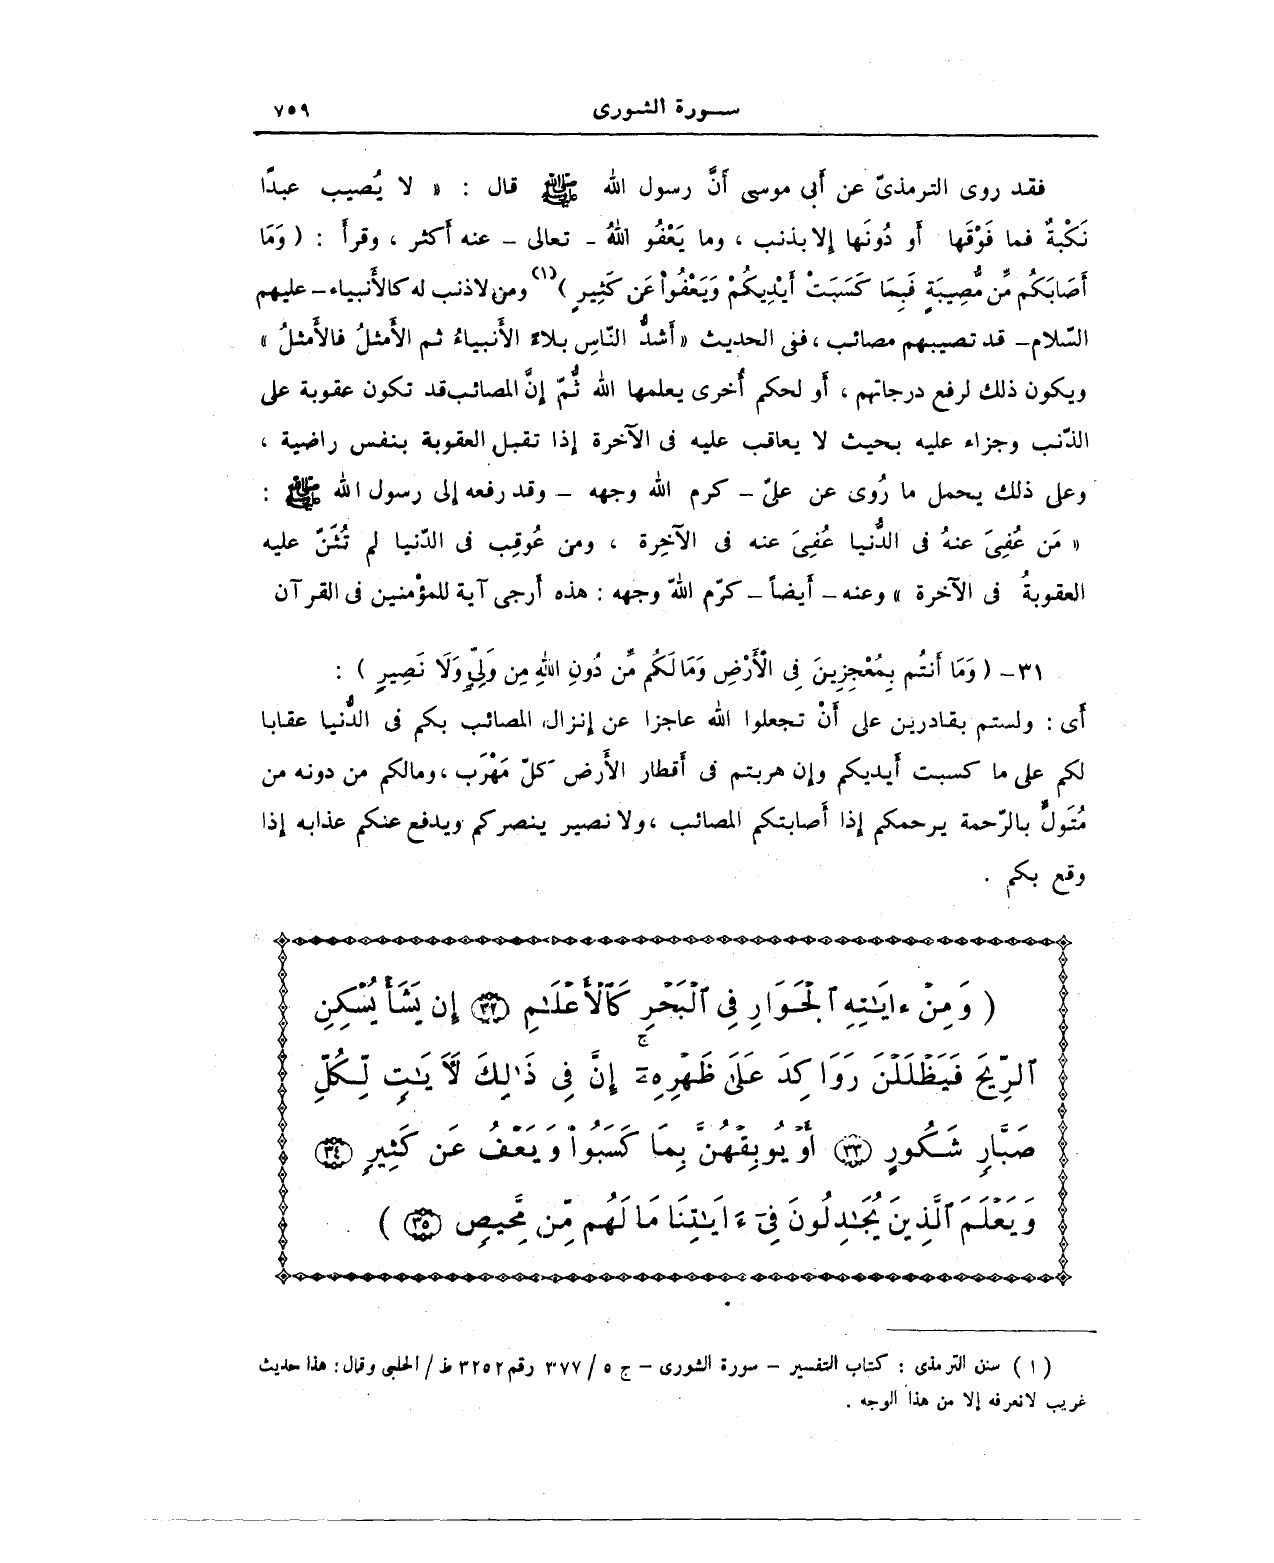 سورة الشورى ٧٥٩
فقد روى الترمذىّ عن أبى موسى أنَّ رسول الله ﷺ قال : « لا يُصيب عبدًا
نَكْبةٌ فما فَوْقَها أو دُونَها إلا بذنب ، وما يَعْفُو اللهُ - تعالى - عنه أكثر ، وقرأ : ( وَمَا
أَصَابَكُم مِّن مُّصِيبَةٍ فَبِمَا كَسَبَتْ أَيْدِيكُمْ وَيَعْفُواْ عَن كَثِيرٍ )(١) ومن لاذنب له كالأنبياء - عليهم
السّلام - قد تصيبهم مصائب ، ففى الحديث « أشدُّ النّاسِ بلاءً الأنبياءُ ثم الأمثلُ فالأمثلُ »
ويكون ذلك لرفع درجاتهم ، أو لحكم أُخرى يعلمها الله ثُمّ إنَّ المصائب قد تكون عقوبة على
الذّنب وجزاء عليه بحيث لا يعاقب عليه فى الآخرة إذا تقبل العقوبة بنفس راضية ،
وعلى ذلك يحمل ما رُوى عن علىّ - كرم الله وجهه - وقد رفعه إلى رسول الله ﷺ :
« مَن عُفِىَ عنهُ فى الدُّنيا عُفِىَ عنه فى الآخِرة ، ومن عُوقِب فى الدّنيا لم تُثَنّ عليه
العقوبةُ فى الآخرة » وعنه - أيضاً - كرّم اللهّ وجهه : هذه أرجى آية للمؤمنين فى القرآن
٣١ - ( وَمَا أَنتُم بِمُعْجِزِينَ فِى الْأَرْضِ وَمَا لَكُم مِّن دُونِ اللهِ مِن وَلِيٍّ وَلَا نَصِيرٍ ) :
أى : ولستم بقادرين على أنْ تجعلوا الله عاجزا عن إنزال المصائب بكم فى الدُّنيا عقابا
لكم على ما كسبت أيديكم وإن هربتم فى أقطار الأرض كلّ مَهْرَب ، ومالكم من دونه من
مُتَولٍّ بالرّحمة يرحمكم إذا أصابتكم المصائب ، ولا نصير ينصركم ويدفع عنكم عذابه إذا
وقع بكم .
( وَمِنْ ءَايَٰتِهِ ٱلْجَوَارِ فِى ٱلْبَحْرِ كَٱلْأَعْلَٰمِ ٣٢ إِن يَشَأْ يُسْكِنِ
ٱلرِّيحَ فَيَظْلَلْنَ رَوَاكِدَ عَلَىٰ ظَهْرِهِۦٓ ۚ إِنَّ فِى ذَٰلِكَ لَـَٔايَٰتٍ لِّكُلِّ
صَبَّارٍ شَكُورٍ ٣٣ أَوْ يُوبِقْهُنَّ بِمَا كَسَبُواْ وَيَعْفُ عَن كَثِيرٍ ٣٤
وَيَعْلَمَ ٱلَّذِينَ يُجَٰدِلُونَ فِىٓ ءَايَٰتِنَا مَا لَهُم مِّن مَّحِيصٍ ٣٥ )
( ١ ) سنن الترمذى : كتاب التفسير - سورة الشورى - ج ٥ / ٣٧٧ رقم ٣٢٥٢ ط / الحلبى وقال : هذا حديث
غريب لانعرفه إلا من هذا الوجه .